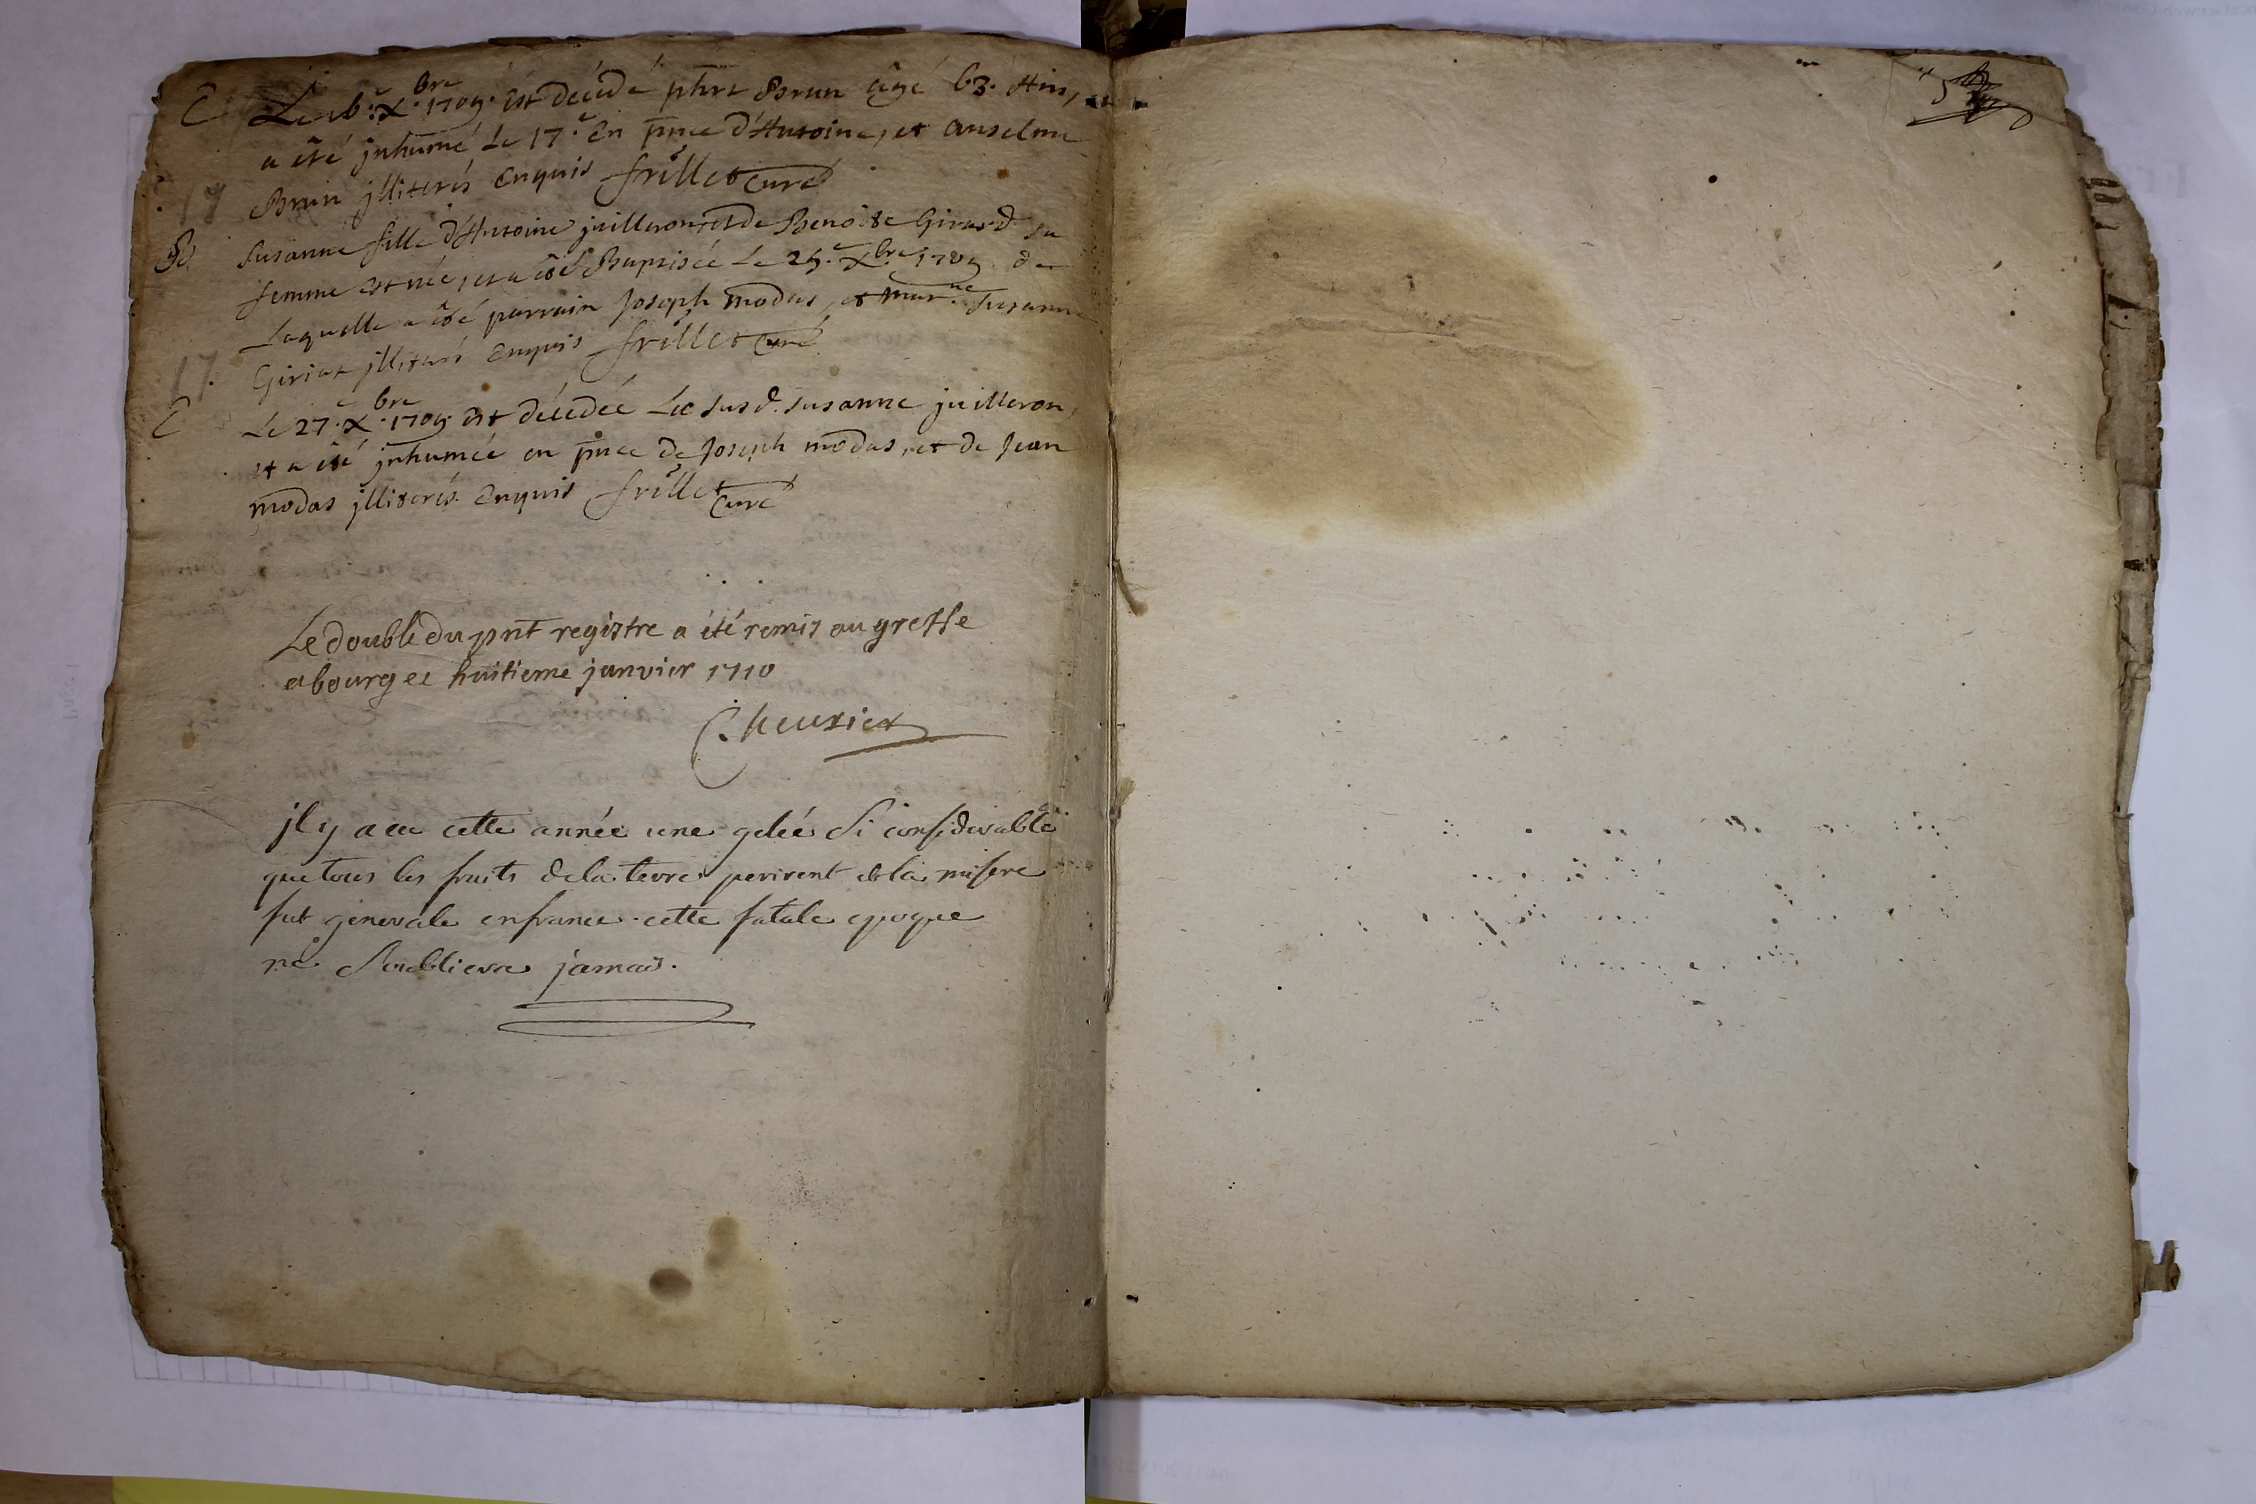 Le 16.e X.bre 1709. est décédé phrt Brun âgé 63. Ans,
a été jnhumé Le 17.e En pnce d'Antoine, et Anselme
Brun jlliterés Enquis frillet curé
B. Susanne fille d'Antoine juilleron, et de Benoite Girard sa
femme est née, et a été Baptisée Le 25.e X.bre 1709 de
Laquelle a été parrain Joseph modas, et mar.ne Susanne
Giriat jlliterés Enquis frillet curé
Le 27.e X.bre 1709 est décédée La susd. susanne juilleron,
et a été jnhumée en pnce de Joseph modas, et de Jean
modas jlliterés Enquis frillet curé
Le double du pnt registre a été remis au greffe
a bourg ce huitieme janvier 1710
Cheurier
jl y a eu cette année une gelée Si considerable
que tous les fruits de la terre perirent et la misere
fut generale en france. cette fatale epoque
ne S'oubliera jamais.
5